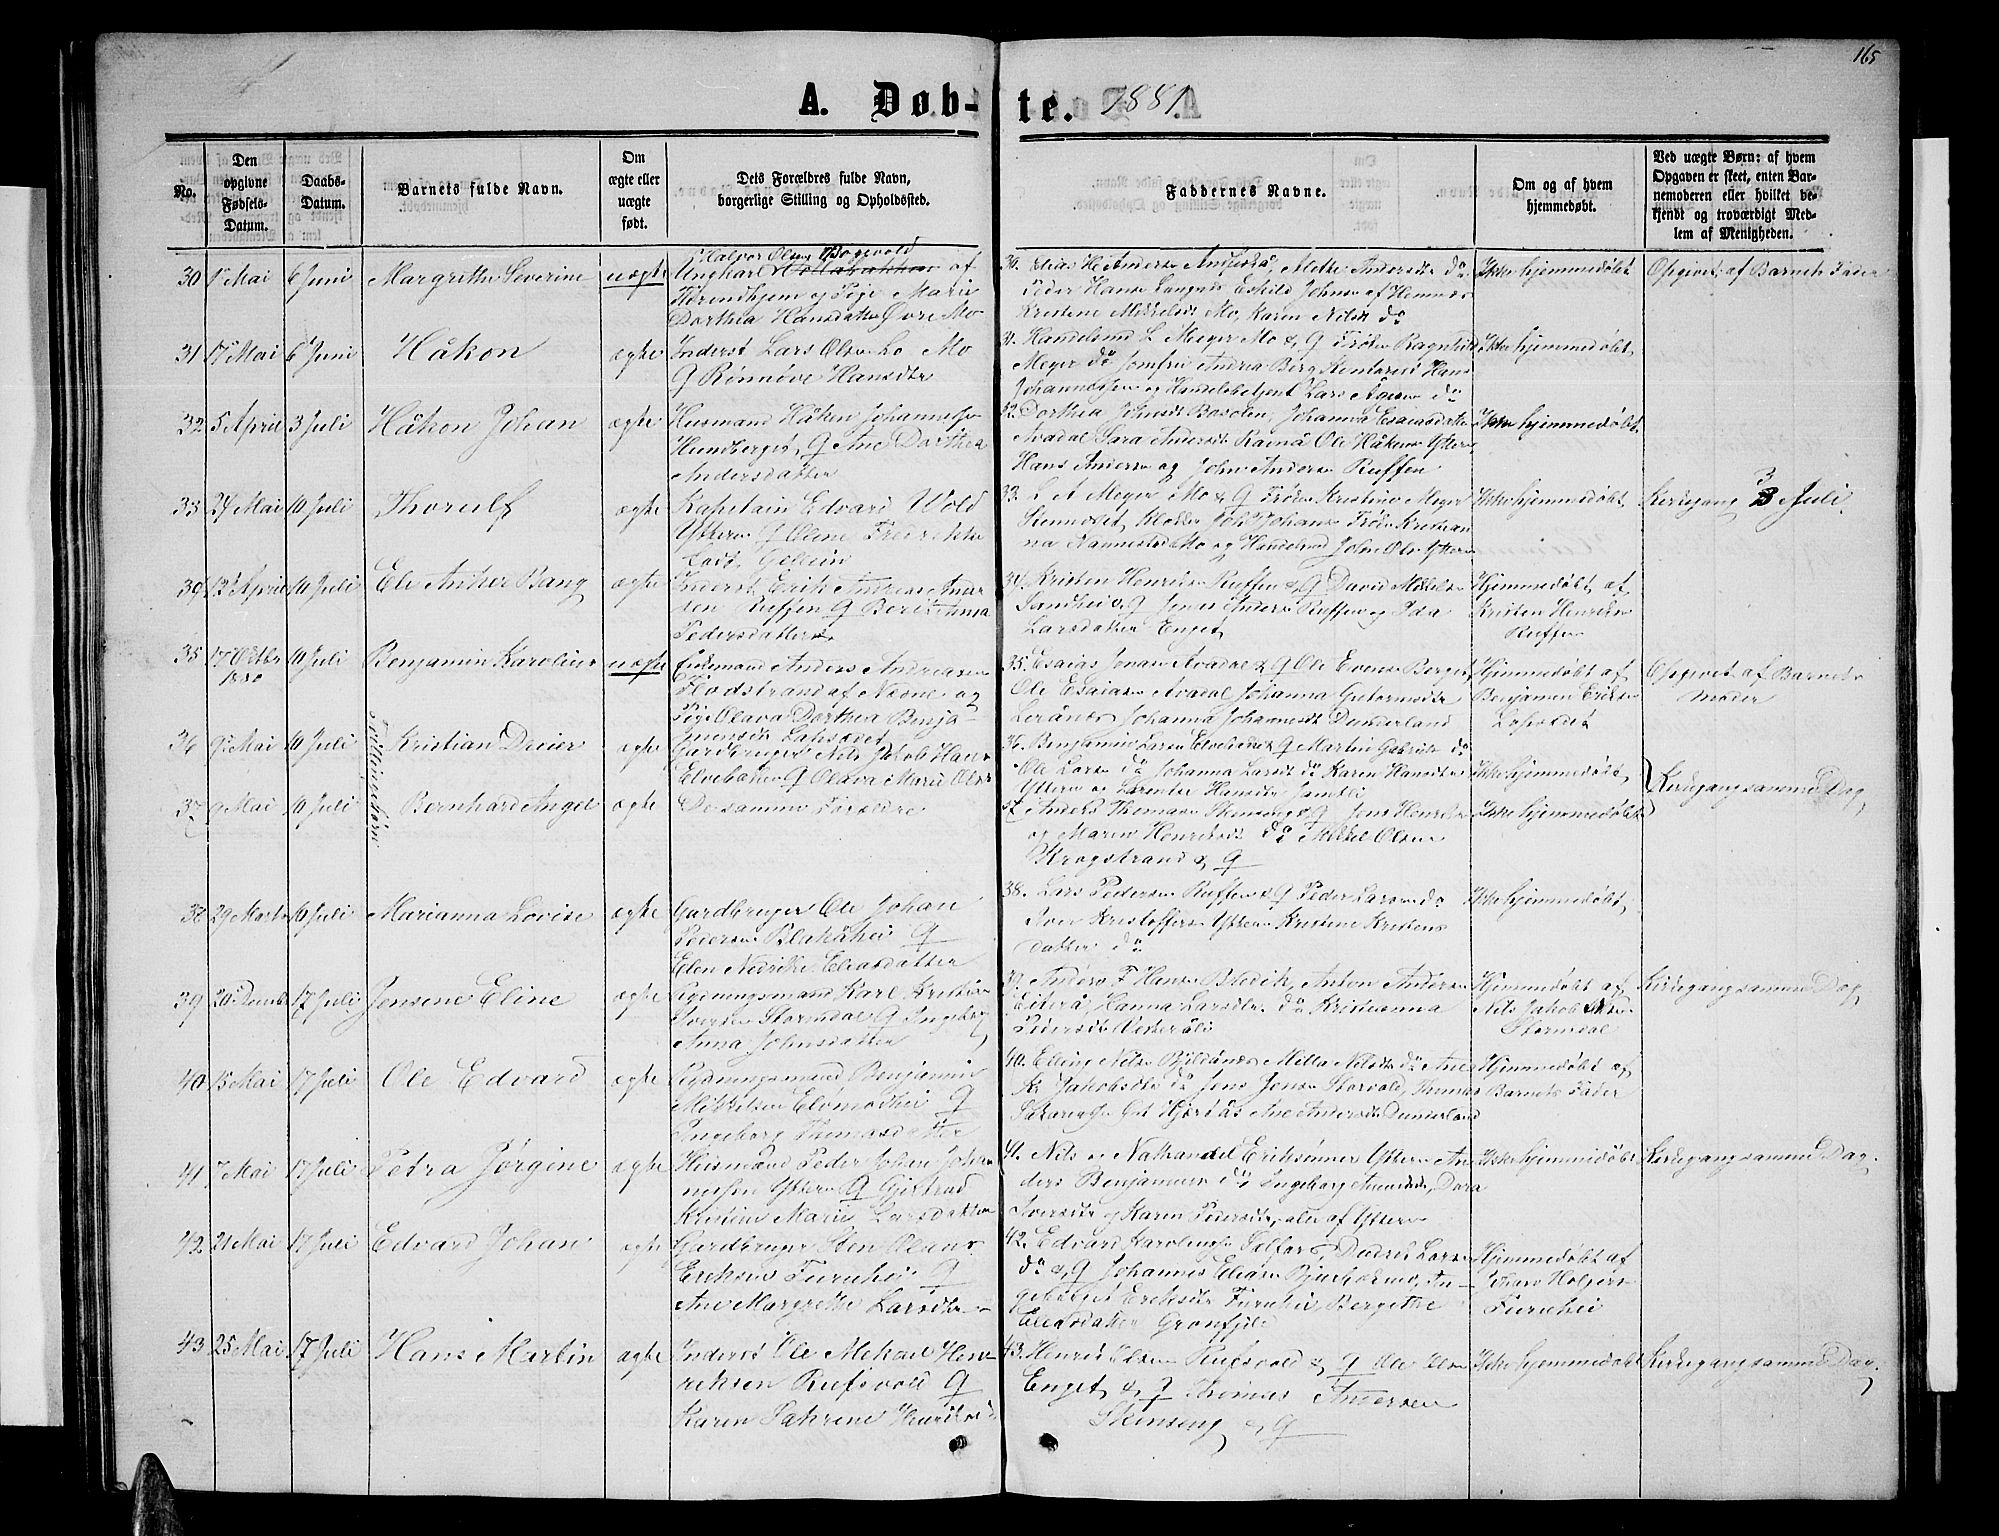 165
A. Døb-te. 1881.
No.
Den opgivne Fødsels-Datum.
Daabs-Datum.
Barnets fulde Navn.
Om ægte eller uægte født.
Dets Forældres fulde Navn, borgerlige Stilling og Opholdssted.
Faddernes Navne.
Om og af hvem hjemmedøbt.
Ved uægte Børn: af hvem Opgaven er skeet, enten Barnemoderen eller hvilket bekjendt og troværdigt Medlem af Menigheden.
30 1ste Mai 6 Juni Margrethe Severine uægte
Halvor Olsen
Ungkarl af
Trondhjem og Pige Marie
Dorthea Hansdatter Øvre Mo
30. Elias H Andersen Mette Andersdtr do
Peder Hansen Langnes Eskild Johns af Hemnes
Kristene Mikkelsdt Mo, Karen Nilsdt do
Ikke hjemmedøbt
Opgivet af Barnets Fader
31 17de Mai 6 Juni Håkon ægte
Inderst Lars Olsen Lo Mo
Q Rønnøve Hansdtr
31. Handelsmd L Meyer Mo & Q Frøken Ragnhild
Meyer do Jomfru Andrea Berg Kontorist Hans
Johannessen og Handelsbetjent Lars Aasen do
Ikke hjemmedøbt
32 5 April 3 Juli Håkon Johan ægte
Husmand Håken Johannessen
Hundberget, Q Ane Dorthea
Andersdatter
32. Dorthea Johnsdt Bosolen, Johanna Esaiasdatter
Avadal Sara Andersdt Raenå Ole Håkens Ytteren
Hans Andersen og John Andersen Ruffen
Ikke hjemmedøbt
33 24 Mai 10 Juli Thorulf ægte
Kaptain Edvard Wold
Ytteren Q Oline Fredrikke
33. L A Meyer Mo & Q Frøken Kristine Meyer
Ikke hjemmedøbt
Kirkegang 3 Juli.
34 12te April 10 Juli Ele Anker Bang ægte
Inderst Erik Andreas Ander
sen Ruffen Q Berit Anna
Pedersdatter
34. Kristen Henriksen Ruffen & Q David Mikkelsen
Jens Andersen Ruffen og Ida
Larsdatter Enget
Hjemmedøbt af
Kristen Henriksen
Ruffen
35 17 Octbr 1880 10 Juli Benjamin Karolius uægte
Enkemand Anders Andreasen
Flodstrand af Næsne og
Pige Olava Dorthea Benja-
minsdtr
35. Esaias Jonasen Avadal & Q Ole Evensen Berget
Ole Esaiasen Avadal Johanna Guttormsdtr
Leránes Johanna Johannesdt Dunderland
Hjemmedøbt af
Benjamin Eriksen
Opgivet af Barnets
Moder
Tvillingebørn
36 9de Mai 10 Juli Kristian Dreier ægte
Gardbruger Nils Jakob Hansen
Elvebakken Q Olava Marie Olsdtr
36. Benjamin Larsen Elvebakken & Q Martin Gabrielsen do
Ole Larsen do Johanna Larsdt do Karen Hansdtr
Ytteren og Lorentse Hansdtr Jamtli
Ikke hjemmedøbt
Kirkegang samme Dag
37 9 Mai 10 Juli Bernhard Angel ægte
De samme Forældre
37. Anders Thomasen Skonseng & Q Jens Henriksen
og Maren Henriksdt do Mikkel Olsen
Krogstrand & Q
Ikke hjemmedøbt
38 29 Marts 10 Juli Marianna Lovise ægte
Gardbruger Ole Johan
Pedersen Blakåhei Q
Elen Nedrikke Eliasdatter
38. Lars Pedersen Ruffen & Q Peder Larsen do
Iver Kristoffersen Ytteren Kristine Kristens
datter do
Ikke hjemmedøbt
39 20 Decmbr 17 Juli Jensene Eline ægte
Rydningsmand Karl Kristian
Iversen Stormdal Q Ingeborg
Anna Johnsdatter
39. Anders F Hansen Bredik, Anton Andersen
Eiterå, Hanna Larsdtr do Kristianna
Pedersdt Vesteråli
Hjemmedøbt af
Nils Jakob
Stormdal
Kirkegang samme Dag
40 15 Mai 17 Juli Ole Edvard ægte
Rydningsmand Benjamin
Mikkelsen Elvmothei Q
Ingeborg Thomasdatter
40. Elling Nilsen Bjeldånes Mella Nilsdt do Ane
K Jakobsdtr do Jens Jonsen Storvold, Thomas
Sakariassen Hjartås Ane Andersdt Dunderland
Hjemmedøbt af
Barnets Fader
41 7 Mai 17 Juli Petra Jørgine ægte
Husmand Peder Johan Johan
nesen Ytteren Q Gjertrud
Kristine Marie Larsdatter
41. Nils og Nathanael Eriksønner Ytteren An
ders Benjaminsen do Ingeborg Amundsdt, Dara
Iversdtr og Karen Pedersdtr, alle af Ytteren
Ikke hjemmedøbt
Kirkegang samme Dag.
42 21 Mai 17 Juli Edvard Johan ægte
Gardbruger Sten Olaus
Eriksen Furuhei Q
Ane Margrethe Larsdtr
42. Edvard Karoliussen Selfors, Didrik Larsen
do & Q Johannes Eliasen Bjerkemo, An-
Eriksdtr Furuhei Bergitte
Eliasdatter Grønfjeld
Hjemmedøbt af
Johan Holgers
Furuhei
43 25 Mai 17 Juli Hans Martin ægte
Inderst Ole Mikael Hen-
riksen Rufsvold Q
Karen Sakrine Henriksd
43. Henrik Olsen Rufsvold & Q Ole Olsen
Enget & Q Thomas Andersen
Skonseng & Q
Ikke hjemmedøbt
Kirkegang samme Dag.